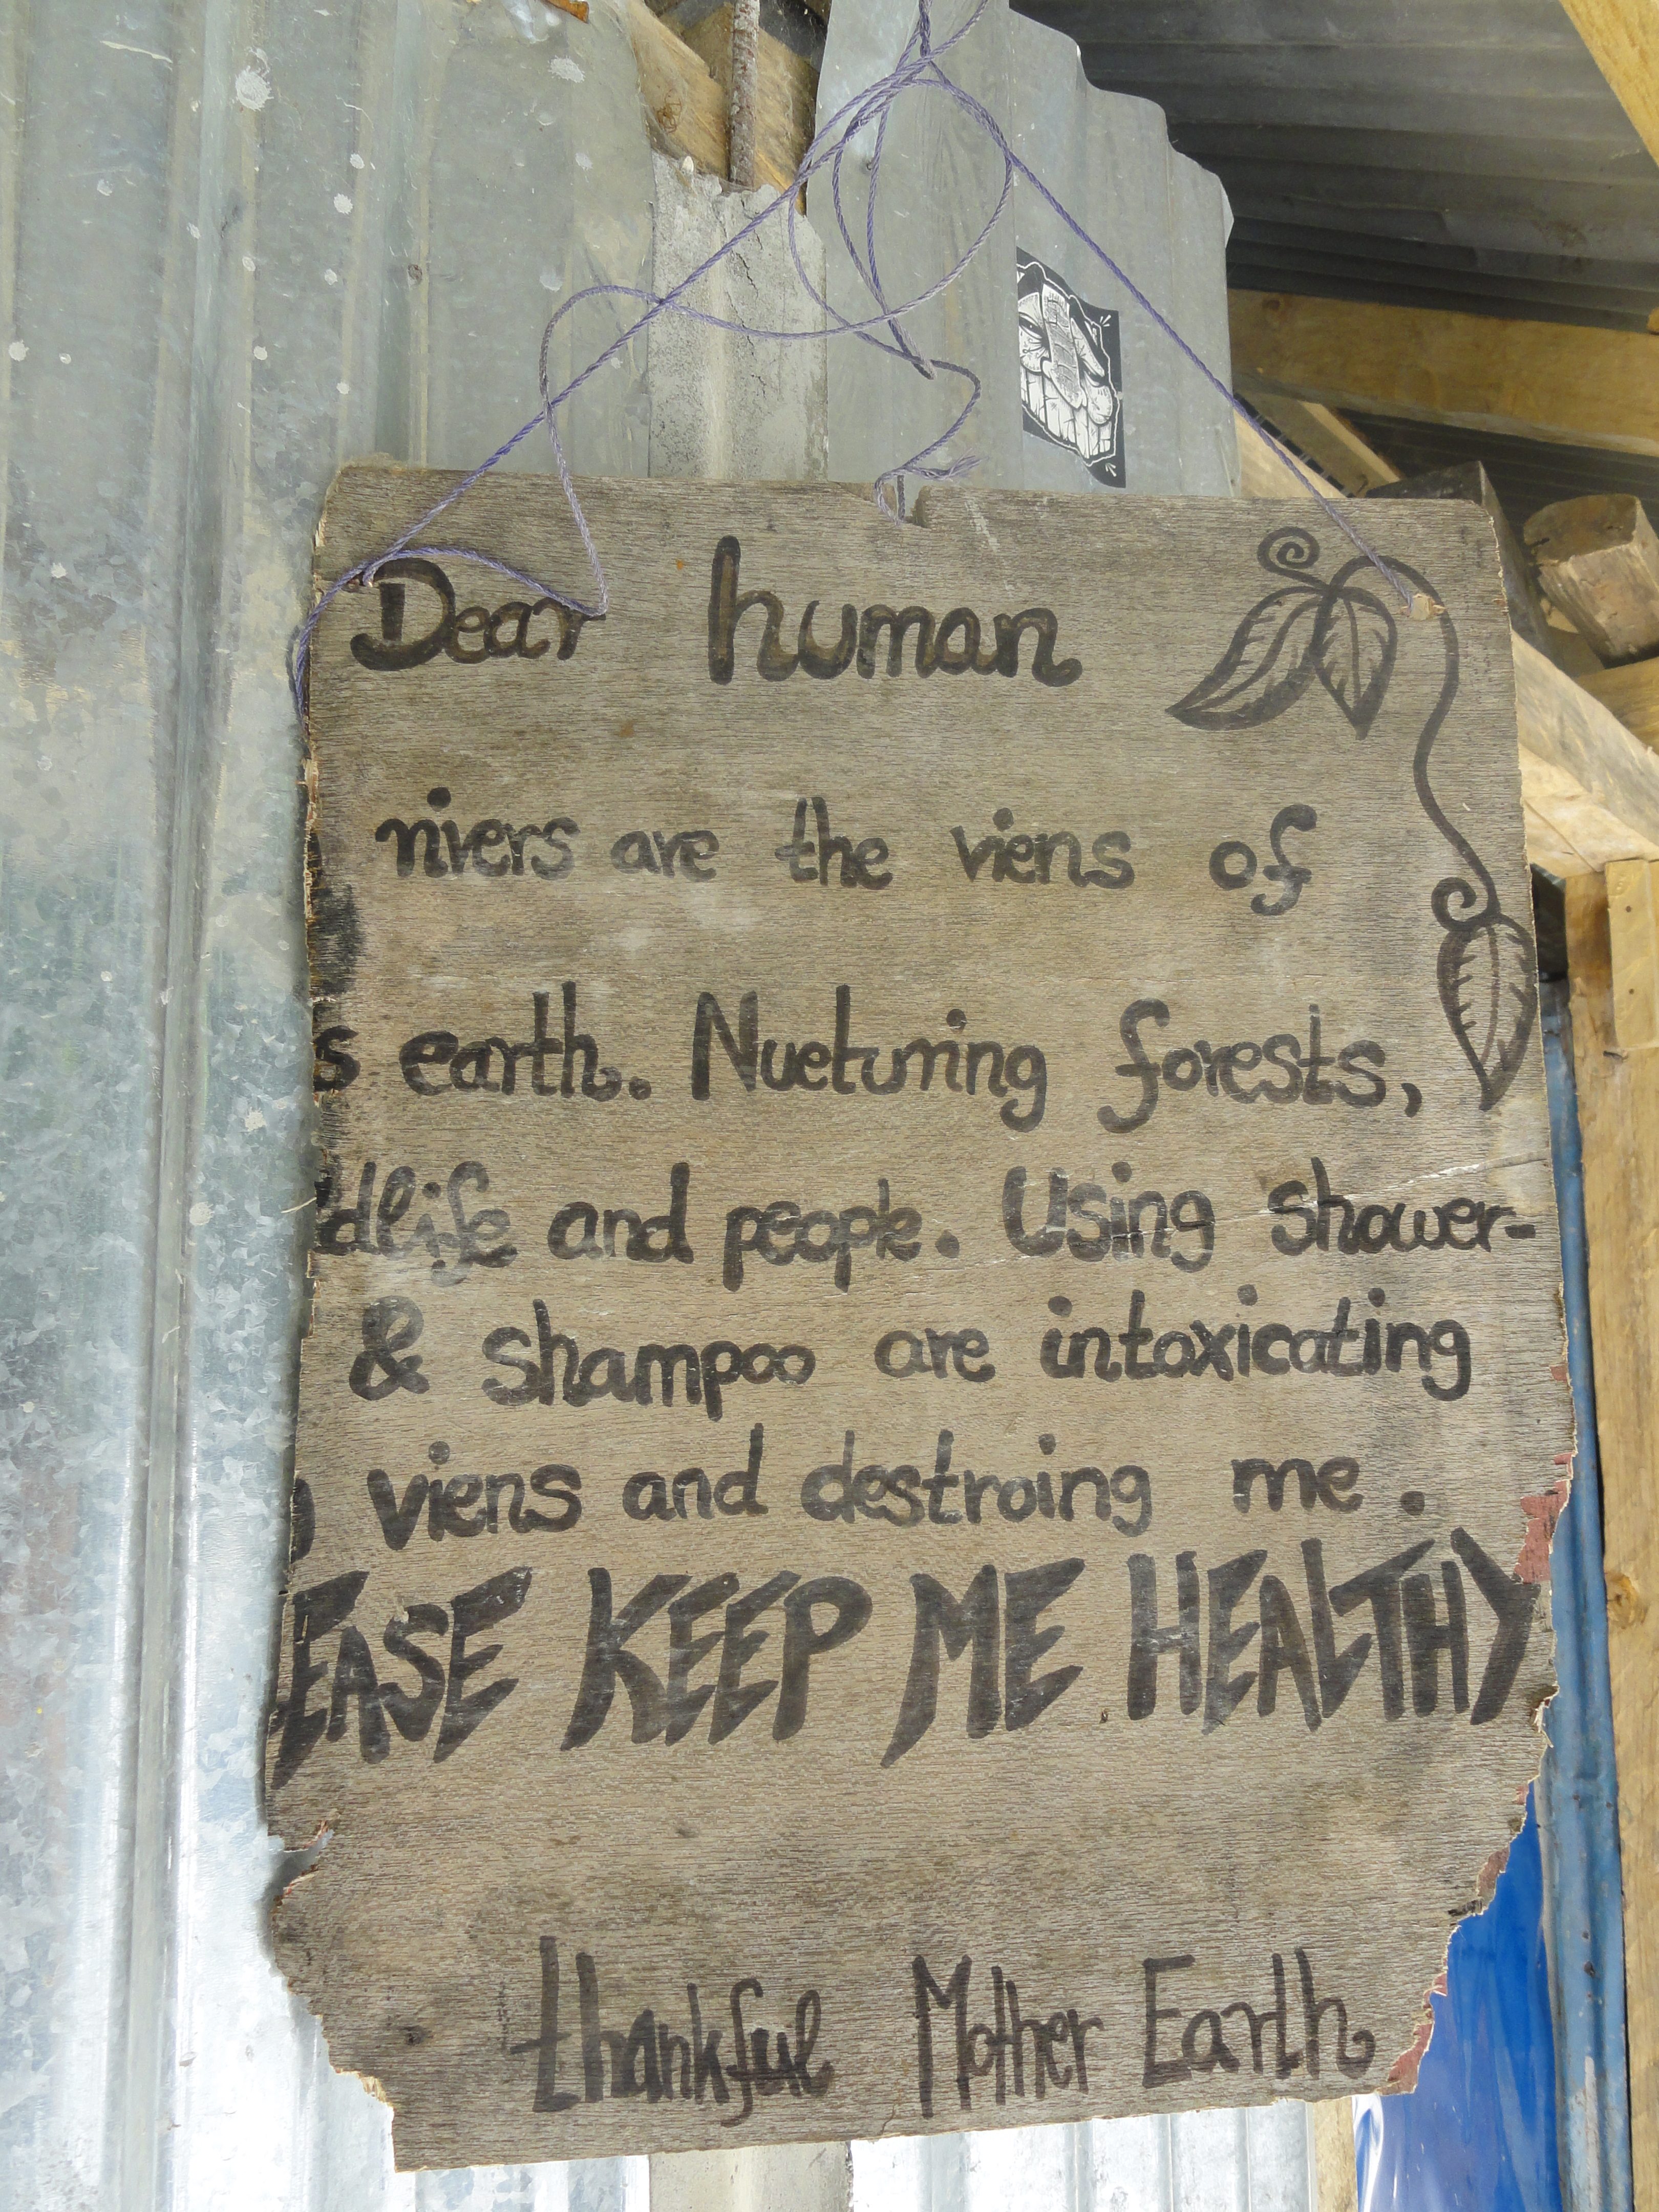 Dear human
rivers are the viens of
s earth. Nueturing forests,
dlife and people. Using shower-
& shampoo are intoxicating
viens and destroing me.
EASE KEEP ME HEALTHY
thankful Mother Earth